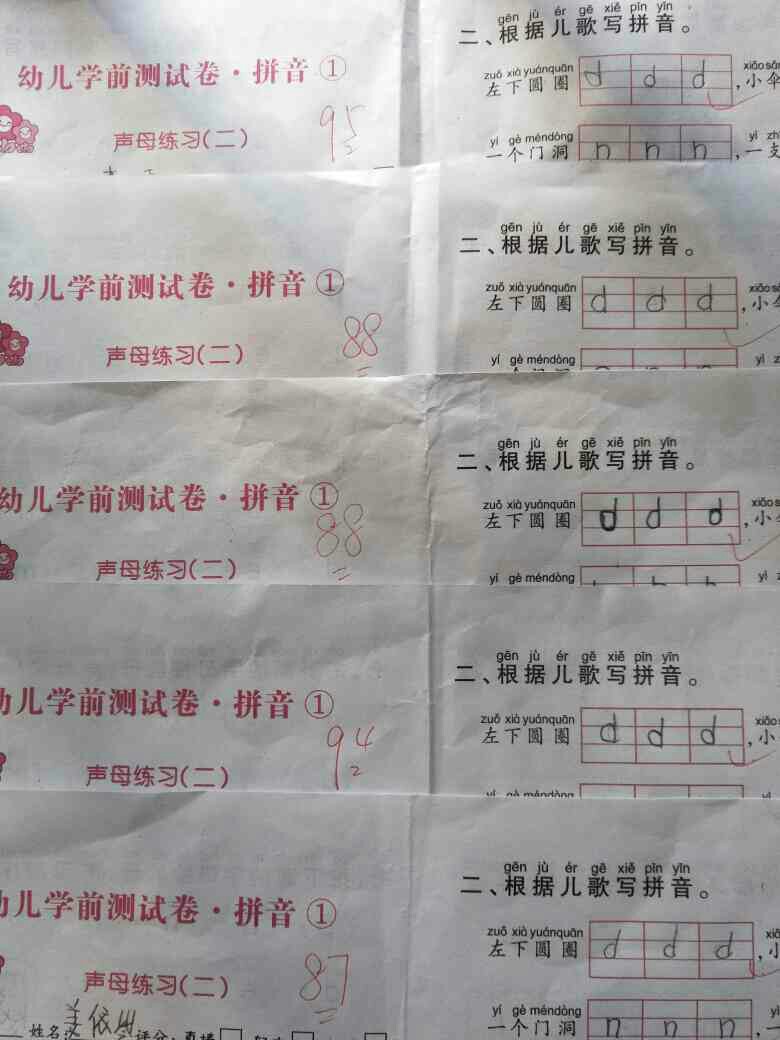 幼儿学前测试卷·拼音①
声母练习(二)
95
gēn jù ér gē xiě pīn yīn
二、根据儿歌写拼音。
zuǒ xià yuánquān
左下圆圈 d d d ,小伞
yí gè méndòng
一个门洞 n n n ,一支
幼儿学前测试卷·拼音①
声母练习(二)
88
gēn jù ér gē xiě pīn yīn
二、根据儿歌写拼音。
zuǒ xià yuánquān
左下圆圈 d d d ,小
yí gè méndòng
幼儿学前测试卷·拼音①
声母练习(二)
88
gēn jù ér gē xiě pīn yīn
二、根据儿歌写拼音。
zuǒ xià yuánquān
左下圆圈 d d d ,小
yí gè méndòng
幼儿学前测试卷·拼音①
声母练习(二)
94
gēn jù ér gē xiě pīn yīn
二、根据儿歌写拼音。
zuǒ xià yuánquān
左下圆圈 d d d ,小
儿学前测试卷·拼音①
声母练习(二)
87
姓名 评分:直播
gēn jù ér gē xiě pīn yīn
二、根据儿歌写拼音。
zuǒ xià yuánquān
左下圆圈 d d d ,小
yí gè méndòng
一个门洞 n n n ,一